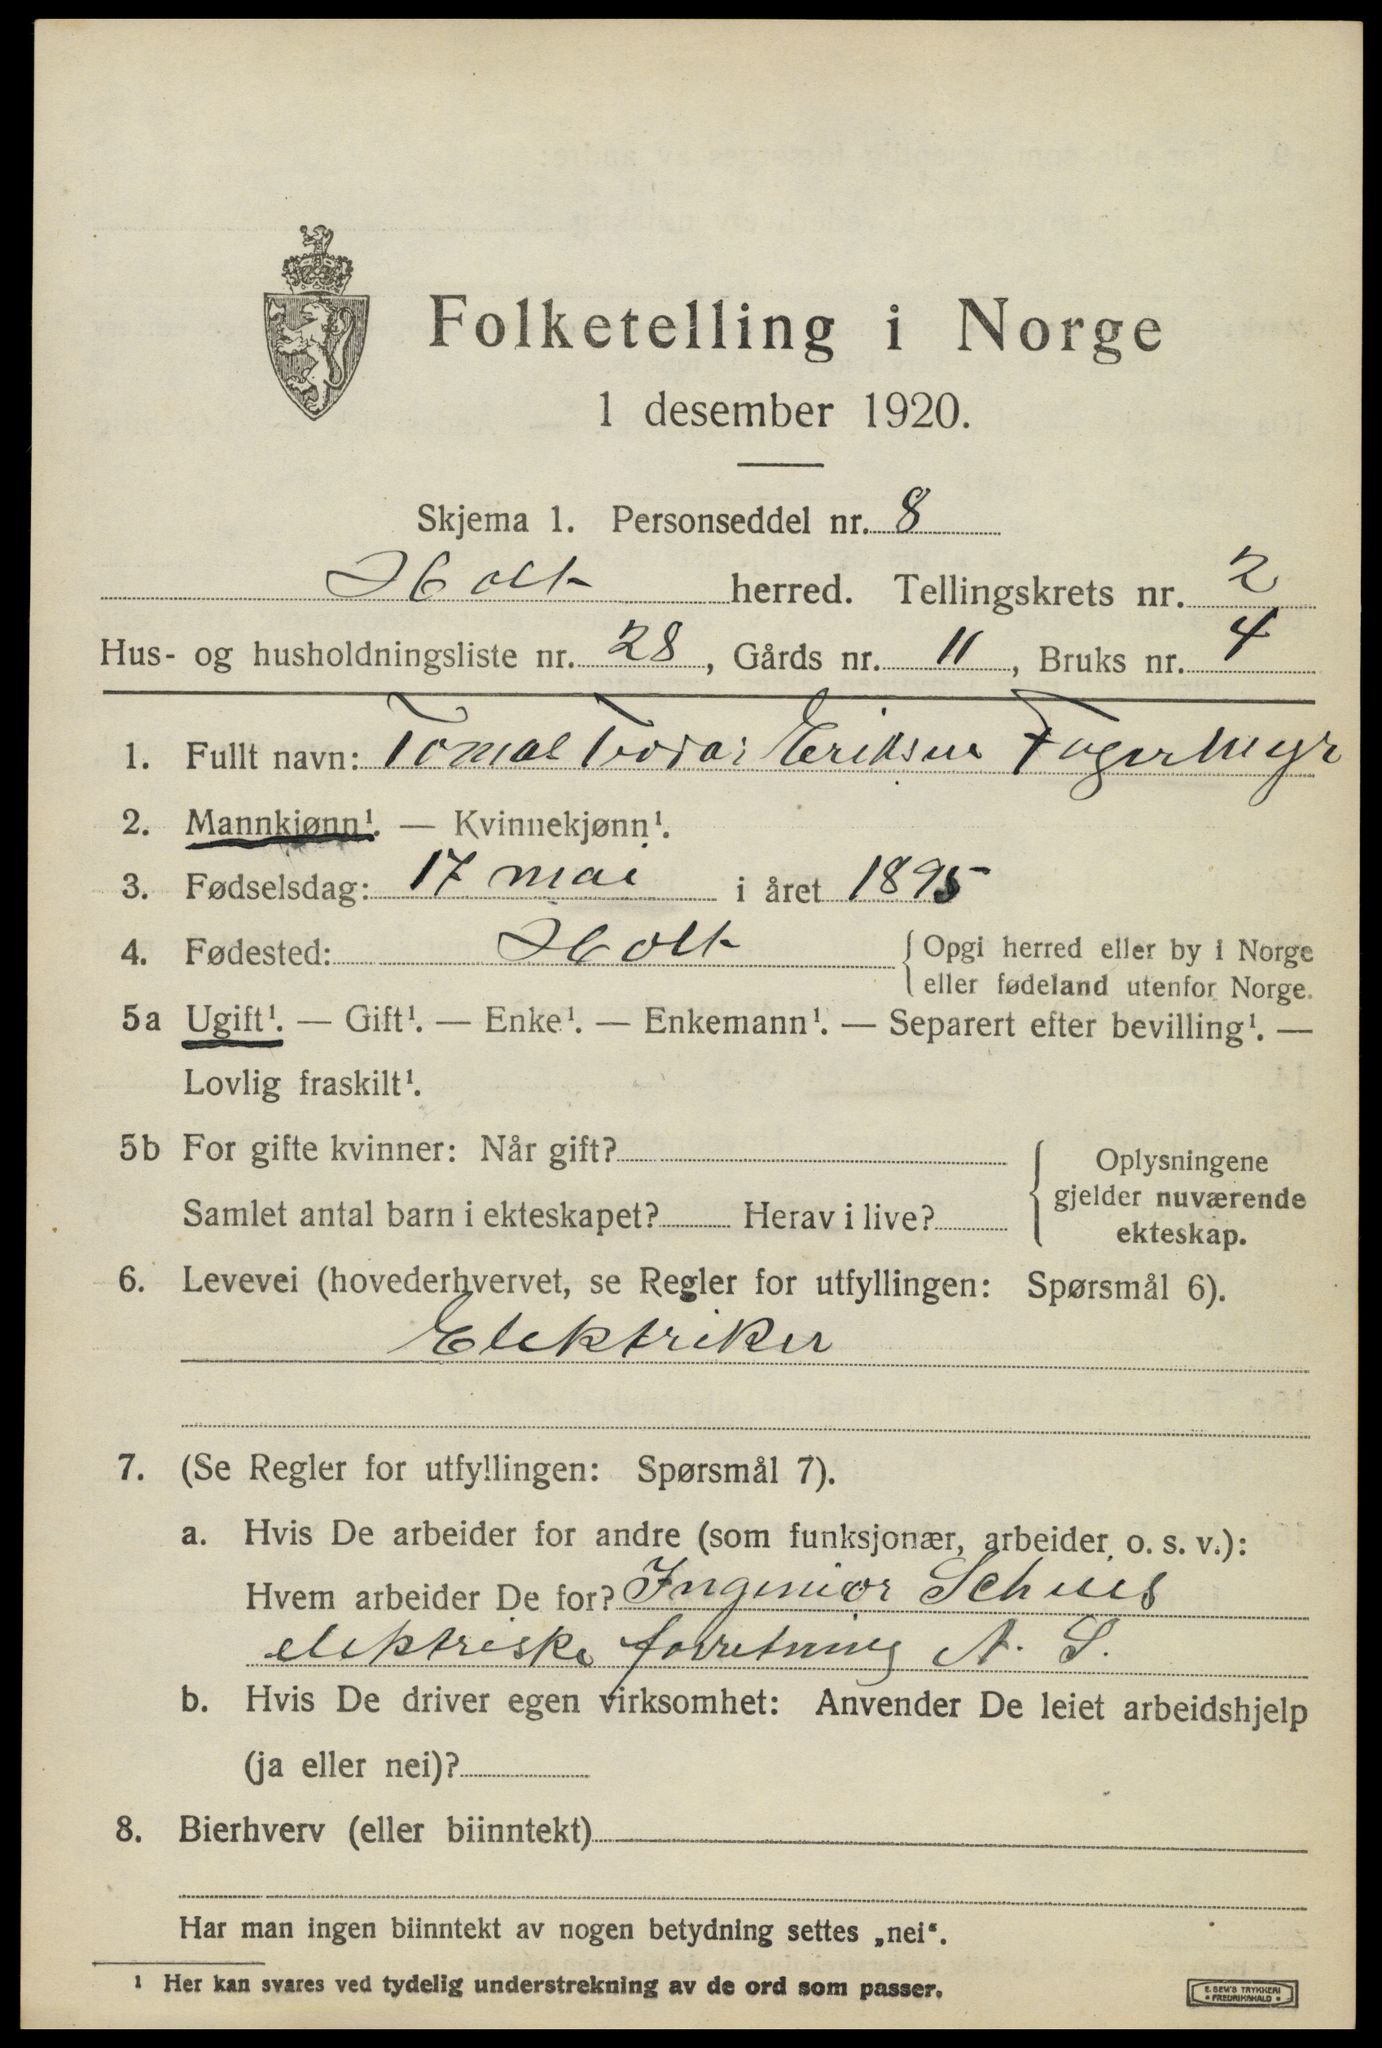 Folketelling i Norge
1 desember 1920.
Skjema 1. Personseddel nr. 8
Holt herred. Tellingskrets nr. 2
Hus- og husholdningsliste nr. 28, Gårds nr. 11, Bruks nr. 4
1. Fullt navn: Tomas Eriksen Fagermyr
2. Mannkjønn¹. — Kvinnekjønn¹.
3. Fødselsdag: 17 mai i året 1895
4. Fødested: Holt { Opgi herred eller by i Norge
eller fødeland utenfor Norge.
5a Ugift¹. — Gift¹. — Enke¹. — Enkemann¹. — Separert efter bevilling¹. —
Lovlig fraskilt¹.
5b For gifte kvinner: Når gift?
Samlet antal barn i ekteskapet? Herav i live?
{ Oplysningene
gjelder nuværende
ekteskap.
6. Levevei (hovederhvervet, se Regler for utfyllingen: Spørsmål 6).
Elektriker
7. (Se Regler for utfyllingen: Spørsmål 7).
a. Hvis De arbeider for andre (som funksjonær, arbeider o. s. v.):
Hvem arbeider De for? Ingeniør
elektriske forretning A. S.
b. Hvis De driver egen virksomhet: Anvender De leiet arbeidshjelp
(ja eller nei)?
8. Bierhverv (eller biinntekt)
Har man ingen biinntekt av nogen betydning settes „nei“.
¹ Her kan svares ved tydelig understrekning av de ord som passer.
E. SEM'S TRYKKERI
• FREDRIKSHALD •